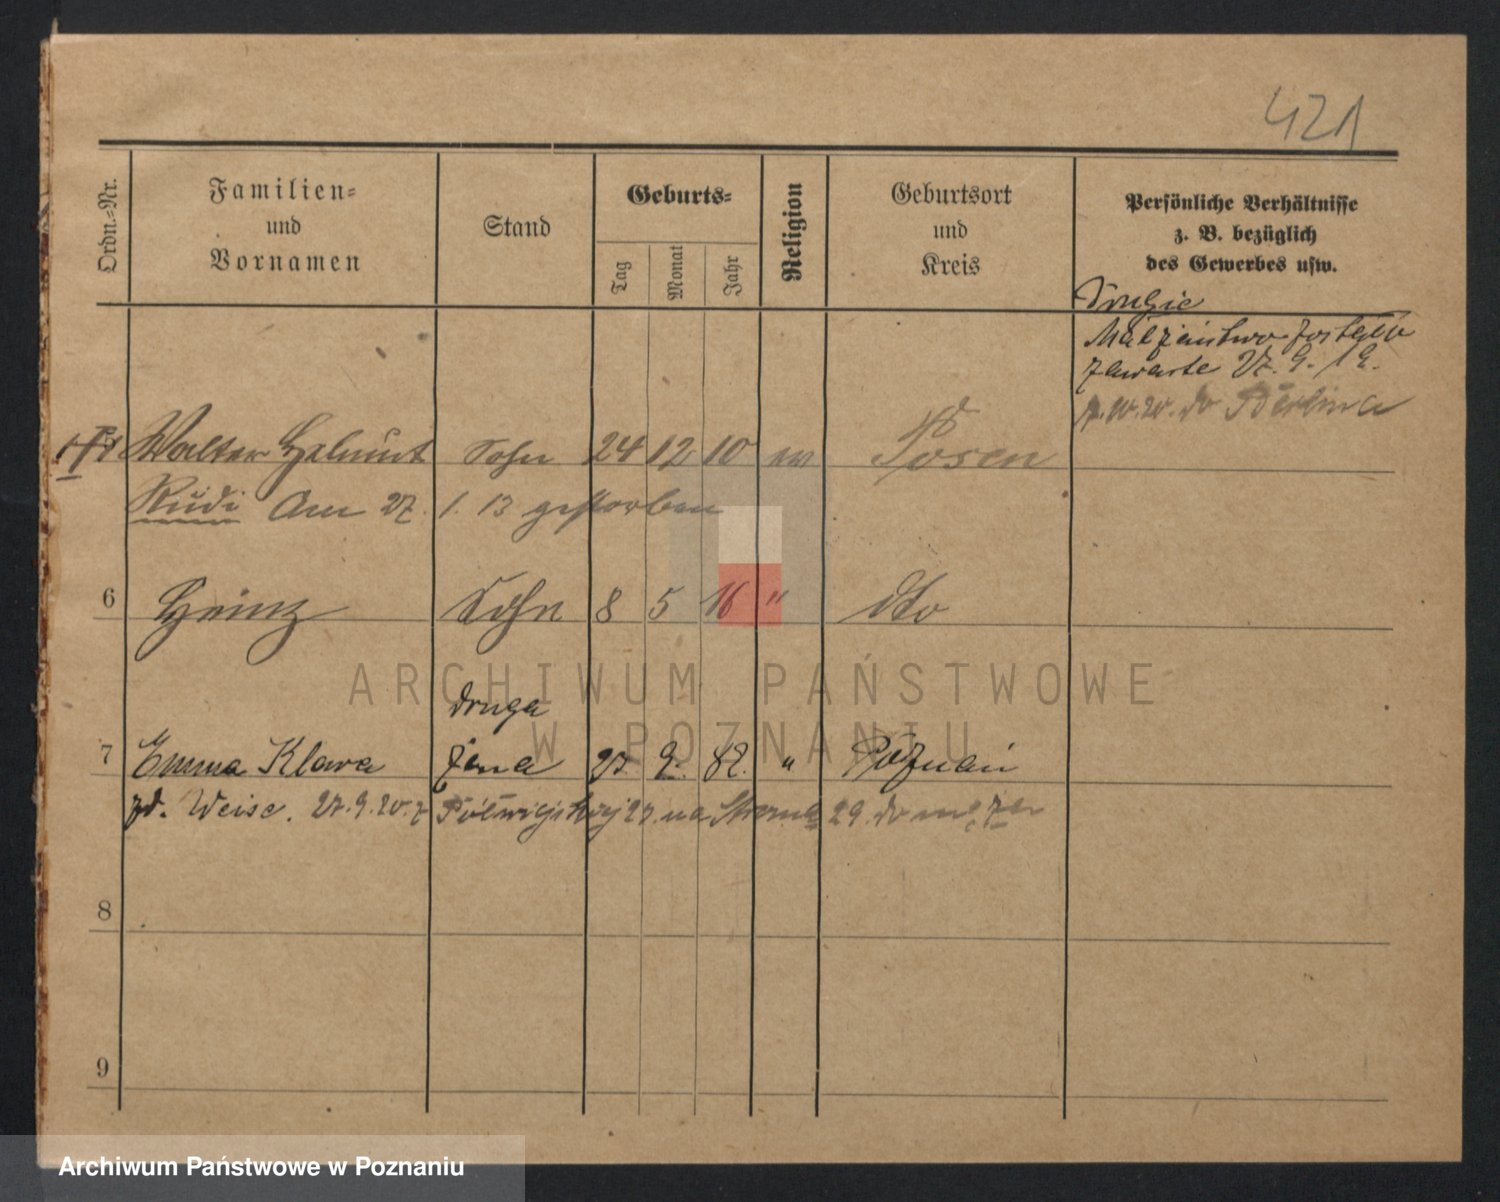 421
Ordn.-Nr.
Familien-
und
Vornamen
Stand
Geburts-
Tag
Monat
Jahr
Religion
Geburtsort
und
Kreis
Persönliche Verhältnisse
z. B. bezüglich
des Gewerbes usw.
Drugie
Małżeństwo zostało
zawarte 27. 9. 19.
7.10.20. do Berlina
Walter Helmut Sohn 24 12 10 ev Posen
Rudi Am 27. 1. 13 gestorben
6 Heinz Sohn 8 5 16 " dto
druga
7 Emma Klara żona 27. 9. 82. " Poznań
zd. Weise. 27.9.20. z 27. na 29 do męża
8
9
ARCHIWUM PAŃSTWOWE
W POZNANIU
Archiwum Państwowe w Poznaniu